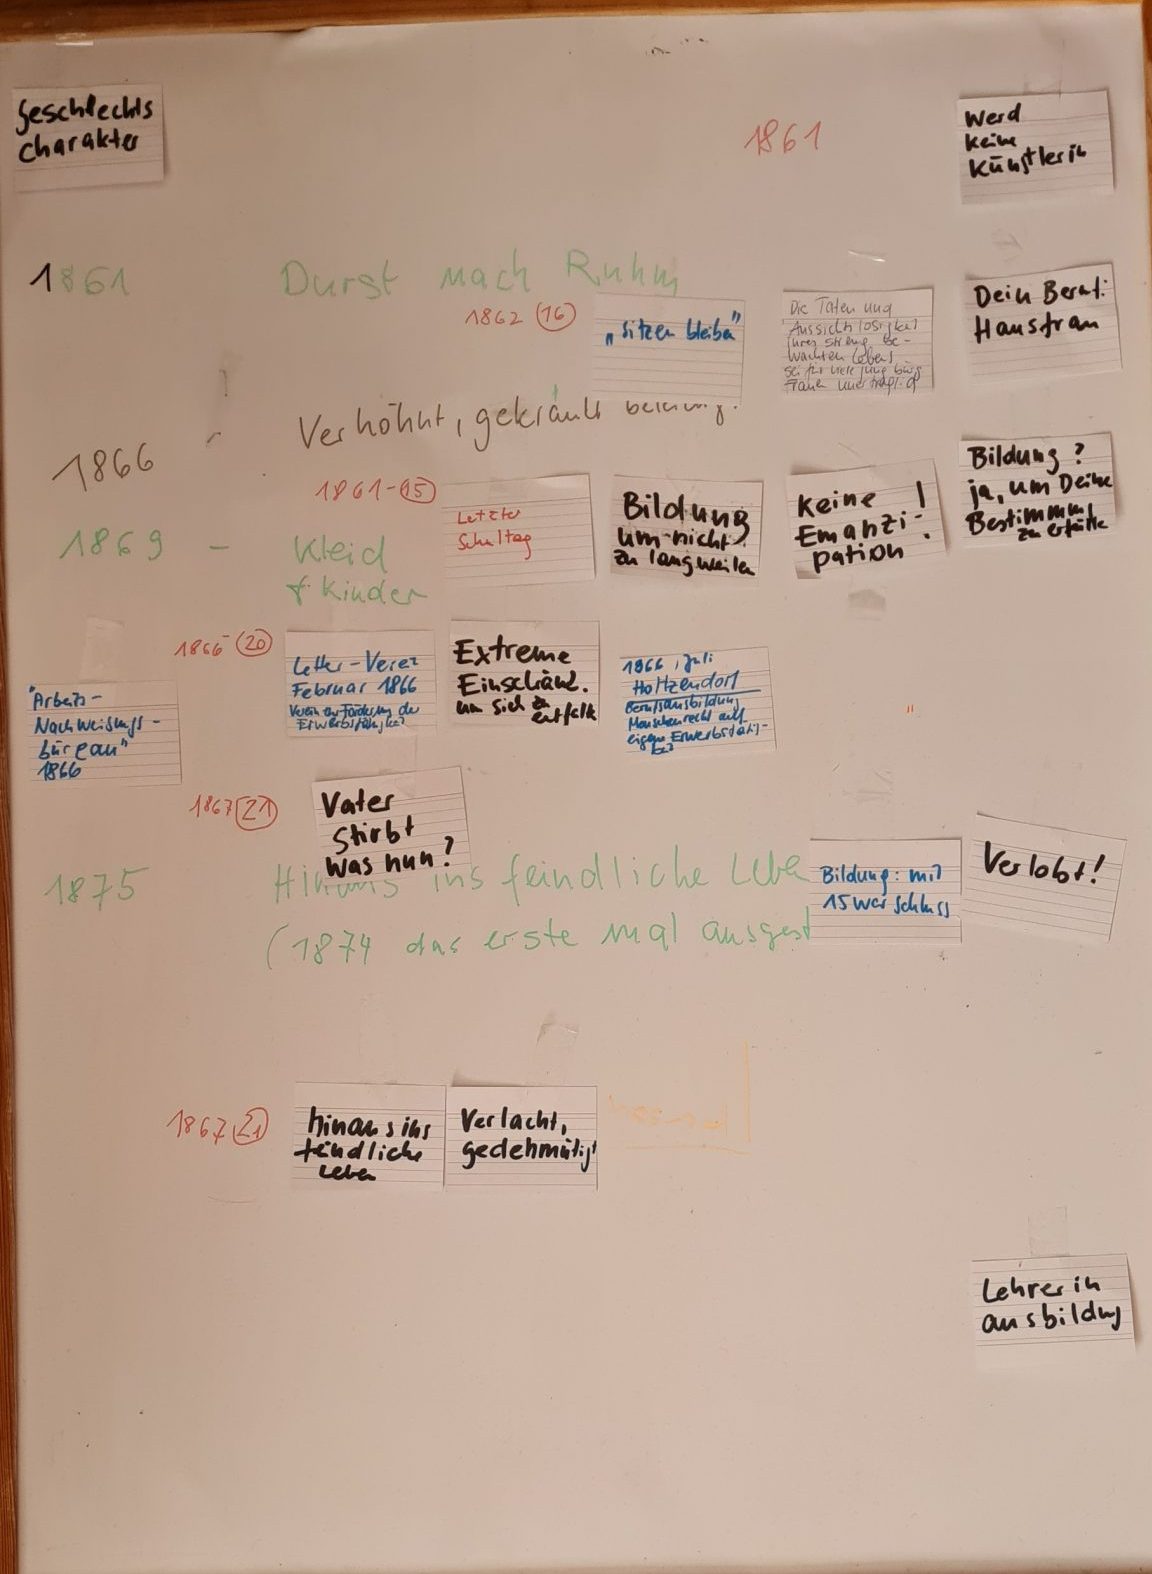 Geschlechts
charakter
1861
Werd
keine
Künstlerin
1861
Durst nach Ruhm
1862 (16)
„Sitzen bleiben"
Die Taten und
Aussichtslosigkeit
ihres streng be-
wachten Lebens
sei für viele jung bürg
Frauen unerträglich
Dein Beruf:
Hausfrau
1866
Verhöhnt, gekränkt
1861-(15)
Letzter
Schultag
Bildung
um nicht
zu langweilen
Keine
Emanzi-
pation!
Bildung?
ja, um Deine
Bestimmung
zu erfülle
1869 - Kleid
+ Kinder
1866 (20)
Lette-Verein
Februar 1866
Verein zur Förderung der
Erwerbsfähigkeit
Extreme
Einschränk.
um sich zu
entfalt
1866, Juli
Holtzendorf
Berufsausbildung
Menschenrecht auf
eigene Erwerbstätig-
keit
"Arbeits-
Nachweisungs-
büreau"
1866
1867 (21)
Vater
stirbt
was nun?
1875
Hinaus ins feindliche Lebe
(1874 das erste mal ausgest
Bildung: mit
15 war schluss
Verlobt!
1867 (21)
hinaus ins
feindliche
Leben
Verlacht,
gedehmütigt
Lehrerin
ausbildung